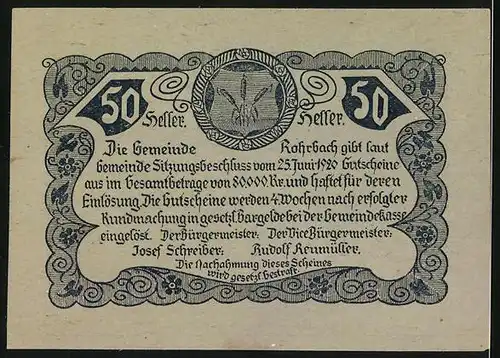 50 50
Heller. Heller.
Die Gemeinde Rohrbach gibt laut
Gemeinde Sitzungsbeschluss vom 25. Juni 1920 Gutscheine
aus im Gesamtbetrage von 80.000 Kr. und haftet für deren
Einlösung. Die Gutscheine werden 4 Wochen nach erfolgter
Kundmachung in gesetzl. Bargelde bei der Gemeindekasse
eingelöst. Der Bürgermeister: Der Vice Bürgermeister:
Josef Schreiber: Rudolf Reumüller.
Die Nachahmung dieses Scheines
wird gesetzl. bestraft.